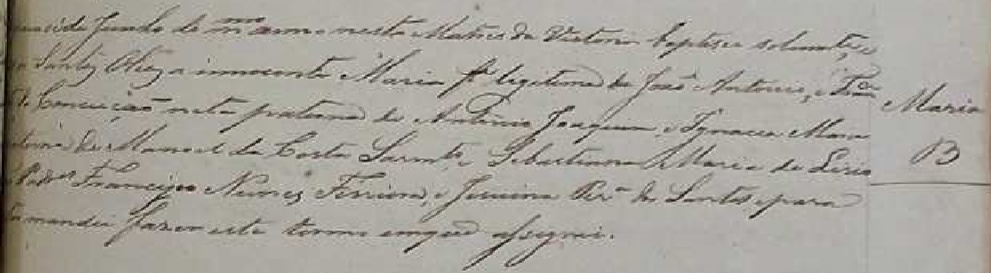 de Junho do mmo anno nesta Matris da Victoria baptisei solemnte, e
Santos Oleos a innocente Maria fa legitima de João Antonio, e
da Conceição neta paterna de Antonio Joaquim e Ignacia Maria
de Manoel da Costa Sarmto, e Sebastiana Maria de Liris
Francisco Nunes Ferreira, e Pera de Santos epara
mandei fazer este termo emqeu assignei.
Maria
B